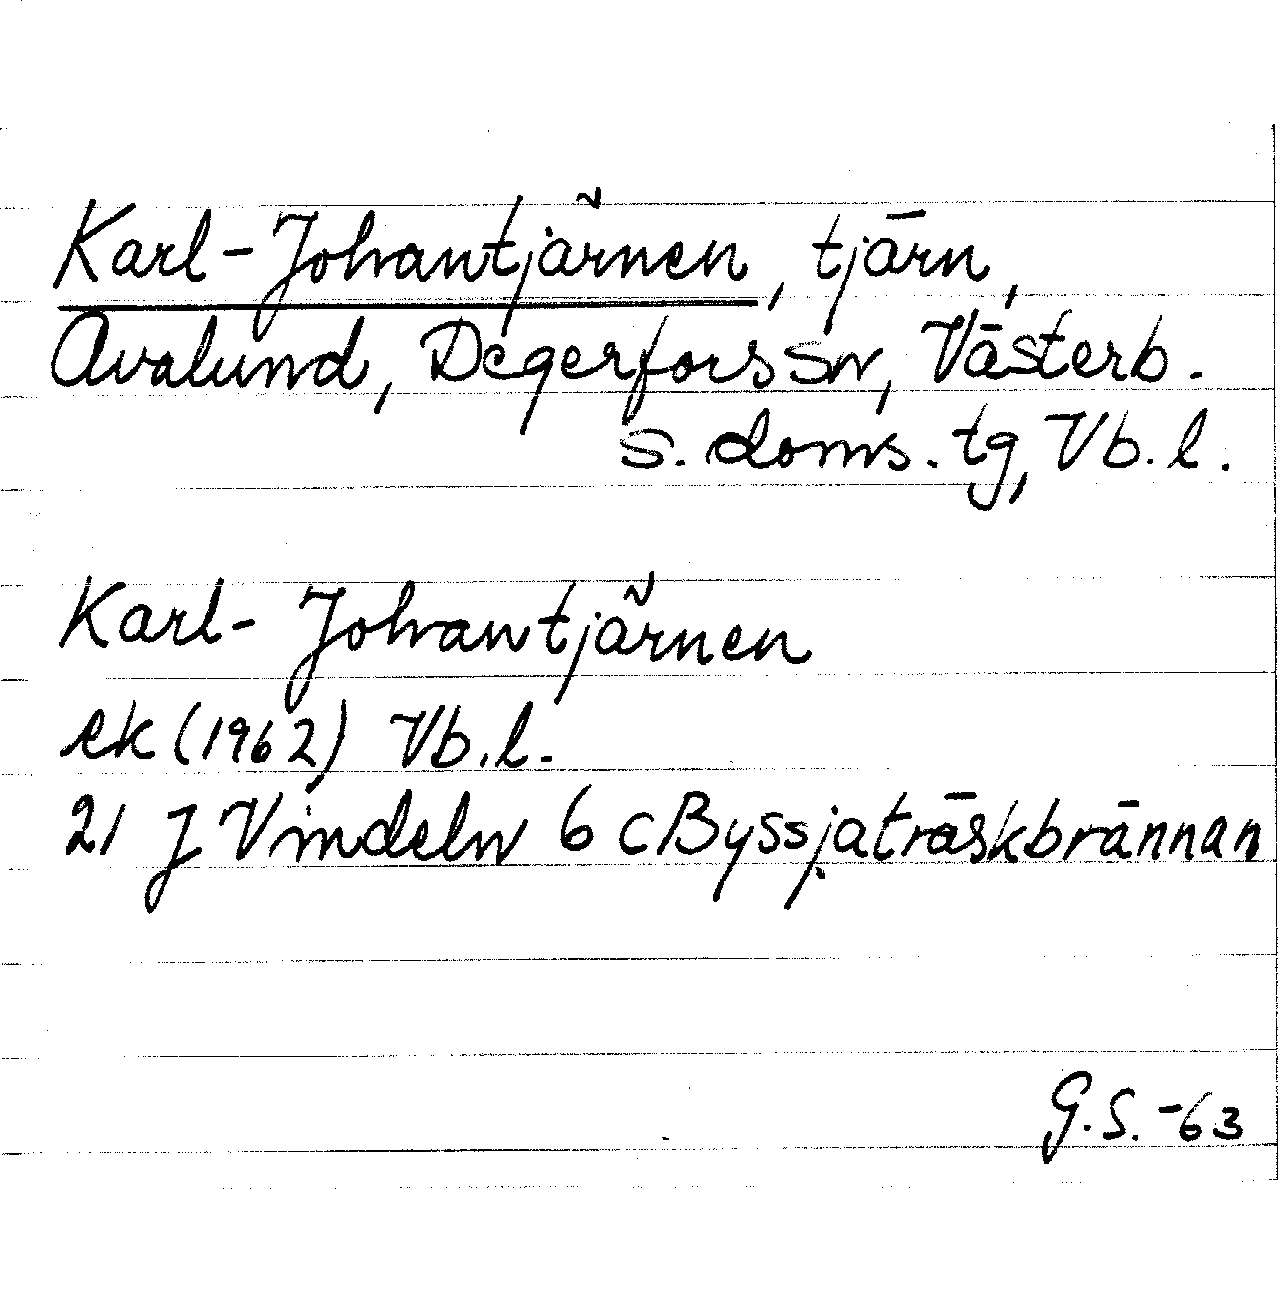 Karl-Johantjärnen, tjärn,
Avalund, Degerfors sn, Västerb.
s. doms. tg, Vb. l.
Karl-Johantjärnen
ek (1962) Vb. l.
21 J Vindeln 6 c Byssjaträskbrännan
G.S. -63